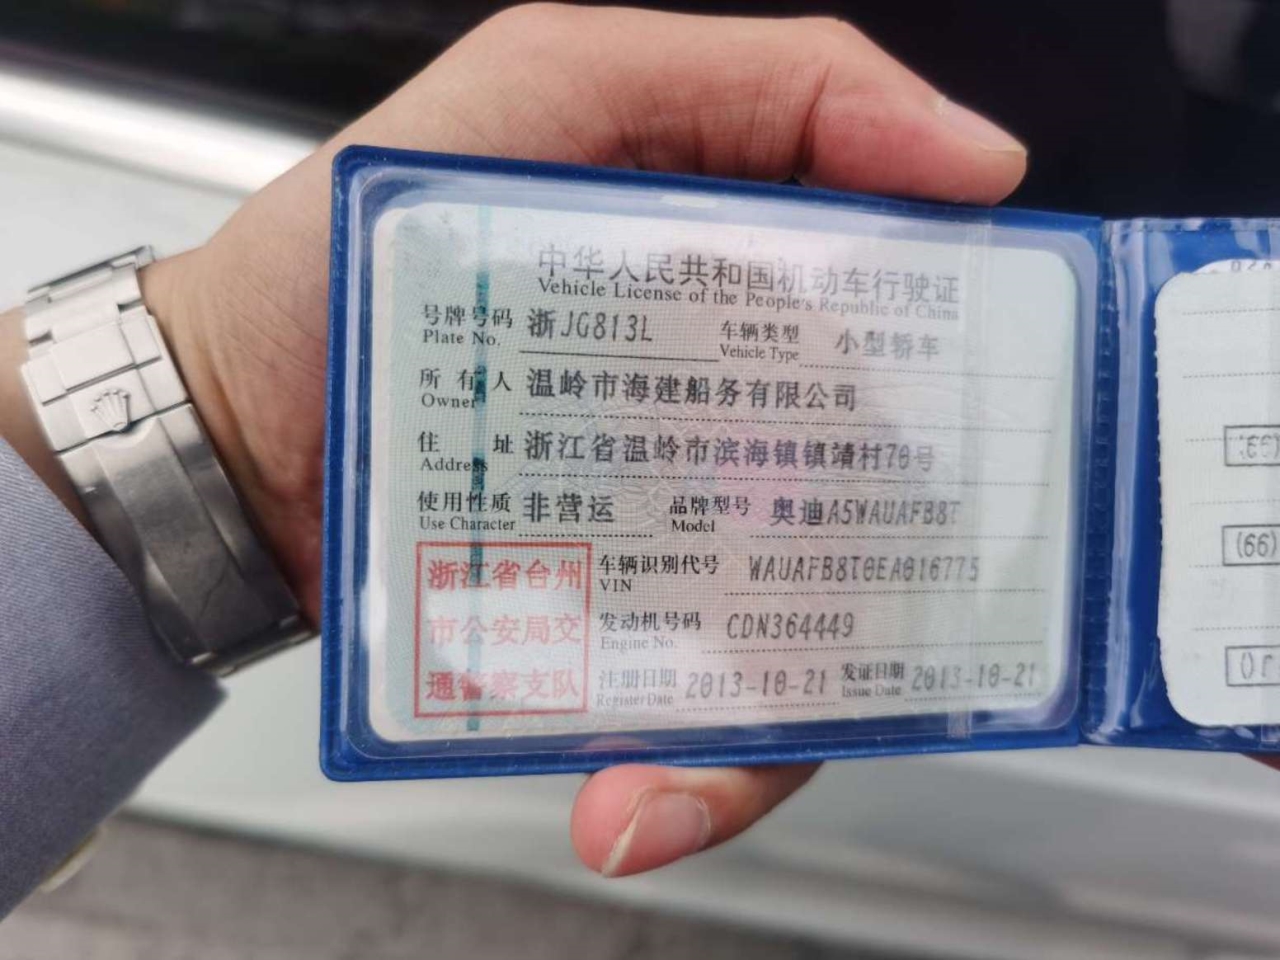 中华人民共和国机动车行驶证
Vehicle License of the People's Republic of China
号牌号码 浙JG813L 车辆类型 小型轿车
Plate No. Vehicle Type
所有人 温岭市海建船务有限公司
Owner
住址 浙江省温岭市滨海镇镇靖村70号
Address
使用性质 非营运 品牌型号 奥迪A5WAUAFB8T
Use Character Model
浙江省台州
市公安局交
通警察支队
车辆识别代号 WAUAFB8T0EA016775
VIN
发动机号码 CDN364449
Engine No.
注册日期 2013-10-21 发证日期 2013-10-21
Register Date Issue Date
(66)